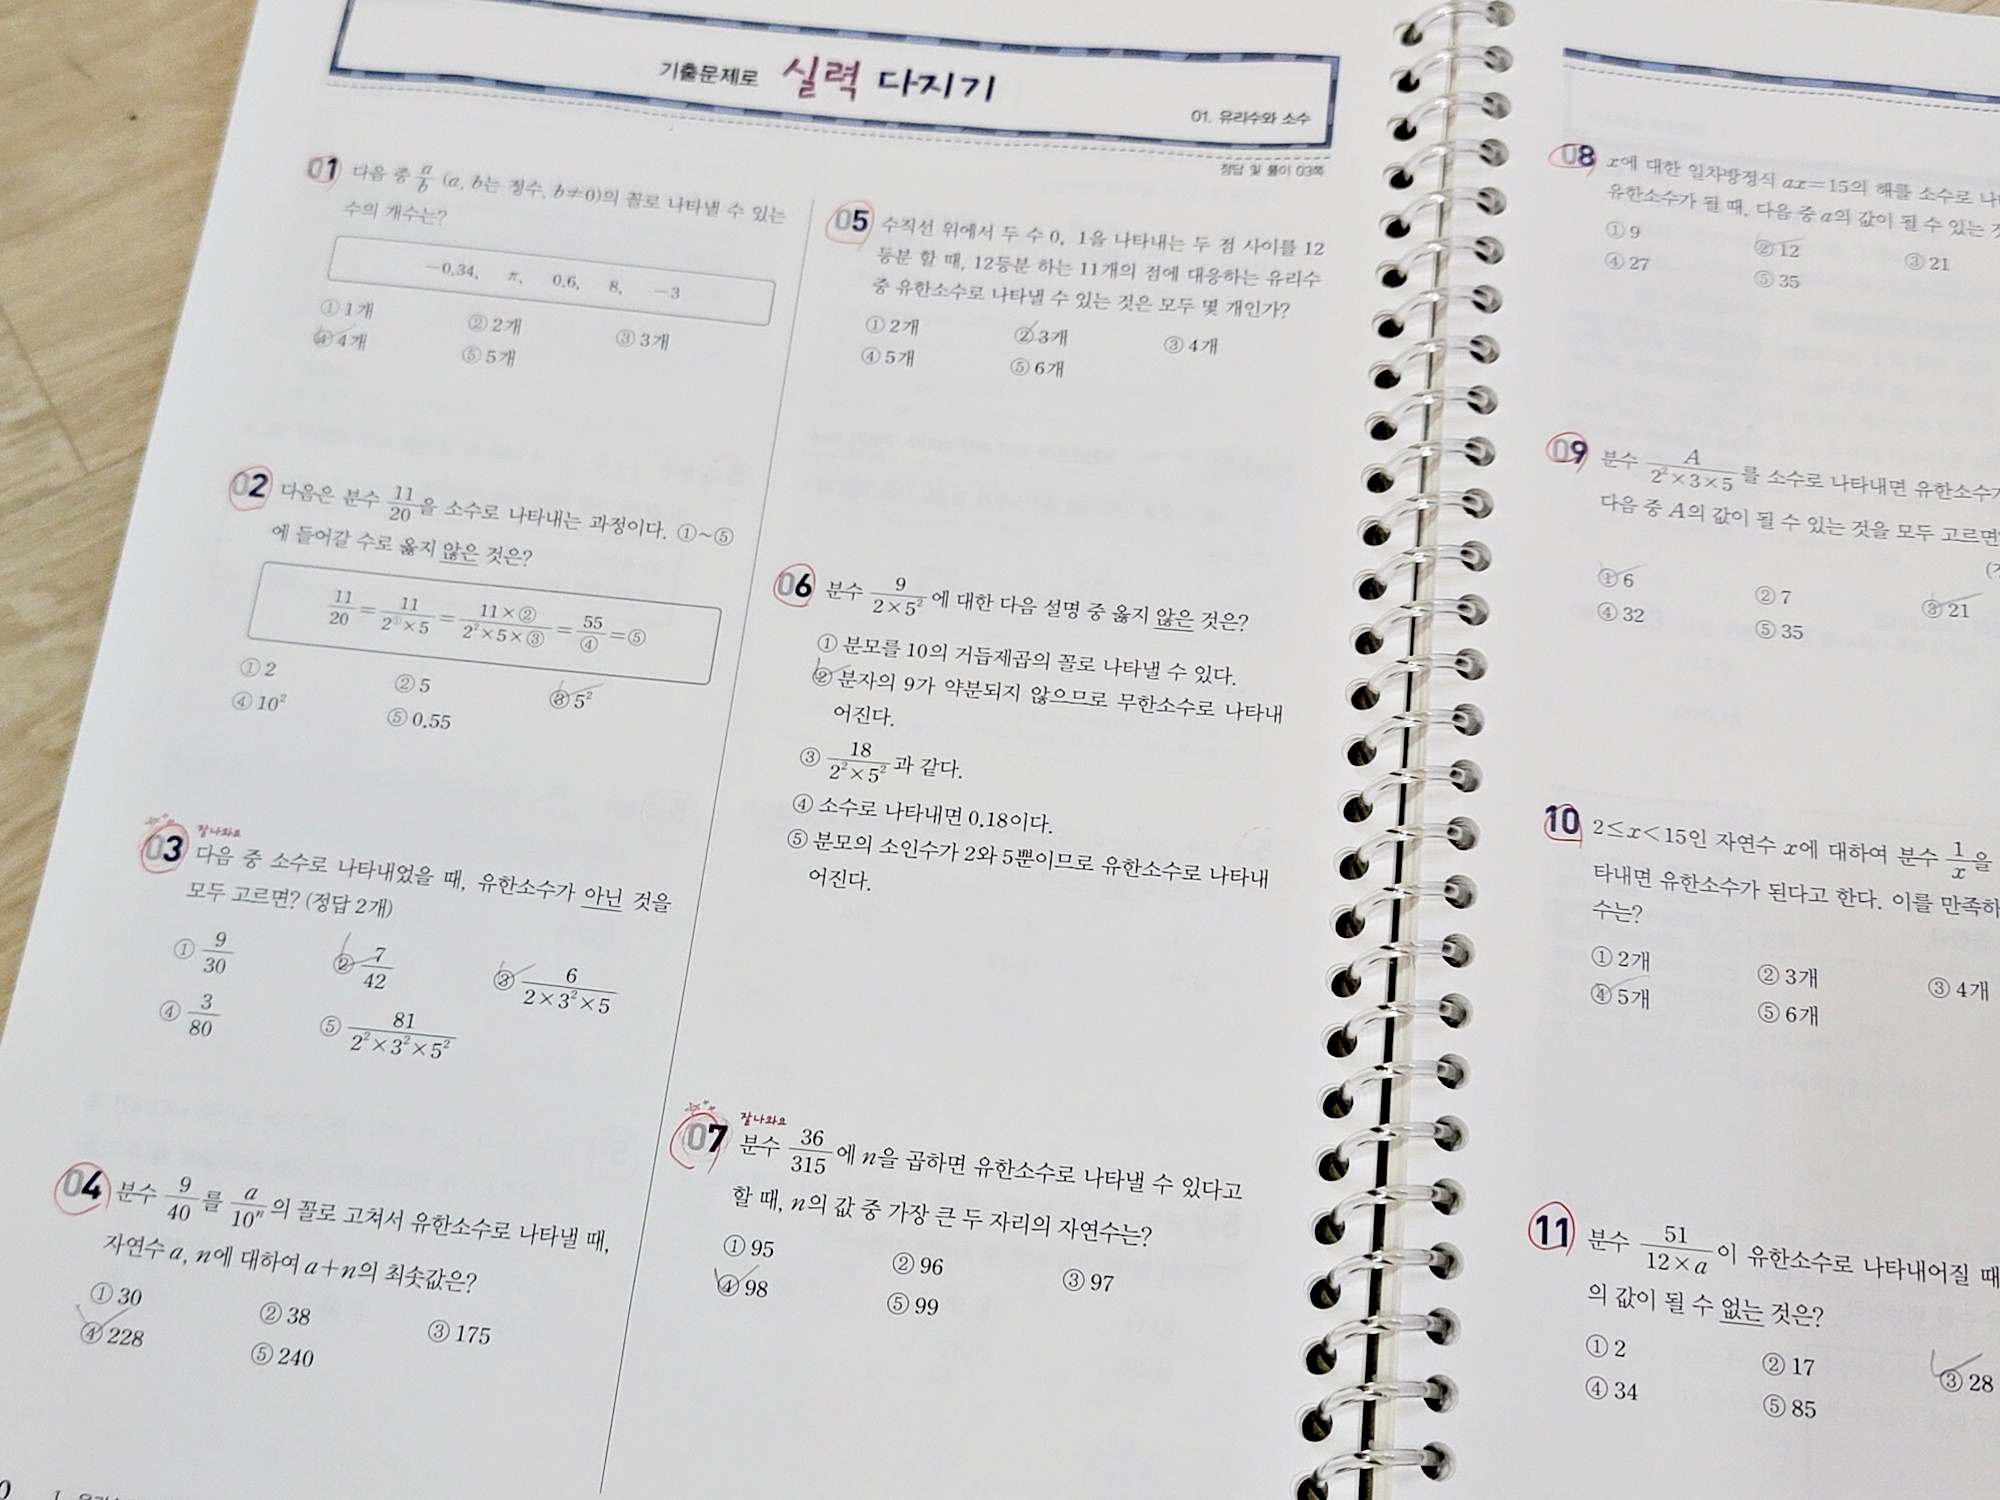 기출문제로 실력 다지기
01. 유리수와 소수
정답 및 풀이 03쪽
01 다음 중 a/b (a, b는 정수, b≠0)의 꼴로 나타낼 수 있는
수의 개수는?
-0.34, π, 0.6, 8, -3
① 1개 ② 2개 ③ 3개
④ 4개 ⑤ 5개
02 다음은 분수 11/20을 소수로 나타내는 과정이다. ①~⑤
에 들어갈 수로 옳지 않은 것은?
11/20 = 11/(2^①×5) = (11×②)/(2²×5×③) = 55/④ = ⑤
① 2 ② 5 ③ 5²
④ 10² ⑤ 0.55
잘나와요
03 다음 중 소수로 나타내었을 때, 유한소수가 아닌 것을
모두 고르면? (정답 2개)
① 9/30 ② 7/42 ③ 6/(2×3²×5)
④ 3/80 ⑤ 81/(2²×3²×5²)
04 분수 9/40를 a/10ⁿ의 꼴로 고쳐서 유한소수로 나타낼 때,
자연수 a, n에 대하여 a+n의 최솟값은?
① 30 ② 38 ③ 175
④ 228 ⑤ 240
05 수직선 위에서 두 수 0, 1을 나타내는 두 점 사이를 12
등분 할 때, 12등분 하는 11개의 점에 대응하는 유리수
중 유한소수로 나타낼 수 있는 것은 모두 몇 개인가?
① 2개 ② 3개 ③ 4개
④ 5개 ⑤ 6개
06 분수 9/(2×5²)에 대한 다음 설명 중 옳지 않은 것은?
① 분모를 10의 거듭제곱의 꼴로 나타낼 수 있다.
② 분자의 9가 약분되지 않으므로 무한소수로 나타내
어진다.
③ 18/(2²×5²)과 같다.
④ 소수로 나타내면 0.18이다.
⑤ 분모의 소인수가 2와 5뿐이므로 유한소수로 나타내
어진다.
잘나와요
07 분수 36/315에 n을 곱하면 유한소수로 나타낼 수 있다고
할 때, n의 값 중 가장 큰 두 자리의 자연수는?
① 95 ② 96 ③ 97
④ 98 ⑤ 99
08 x에 대한 일차방정식 ax=15의 해를 소수로
유한소수가 될 때, 다음 중 a의 값이 될 수 있는
① 9 ② 12 ③ 21
④ 27 ⑤ 35
09 분수 A/(2²×3×5)를 소수로 나타내면
다음 중 A의 값이 될 수 있는 것을 모두 고르면
① 6 ② 7 ③ 21
④ 32 ⑤ 35
10 2≤x<15인 자연수 x에 대하여 분수 1/x을
타내면 유한소수가 된다고 한다. 이를
수는?
① 2개 ② 3개 ③ 4개
④ 5개 ⑤ 6개
11 분수 51/(12×a)이 유한소수로 나타내어질 때
의 값이 될 수 없는 것은?
① 2 ② 17 ③ 28
④ 34 ⑤ 85